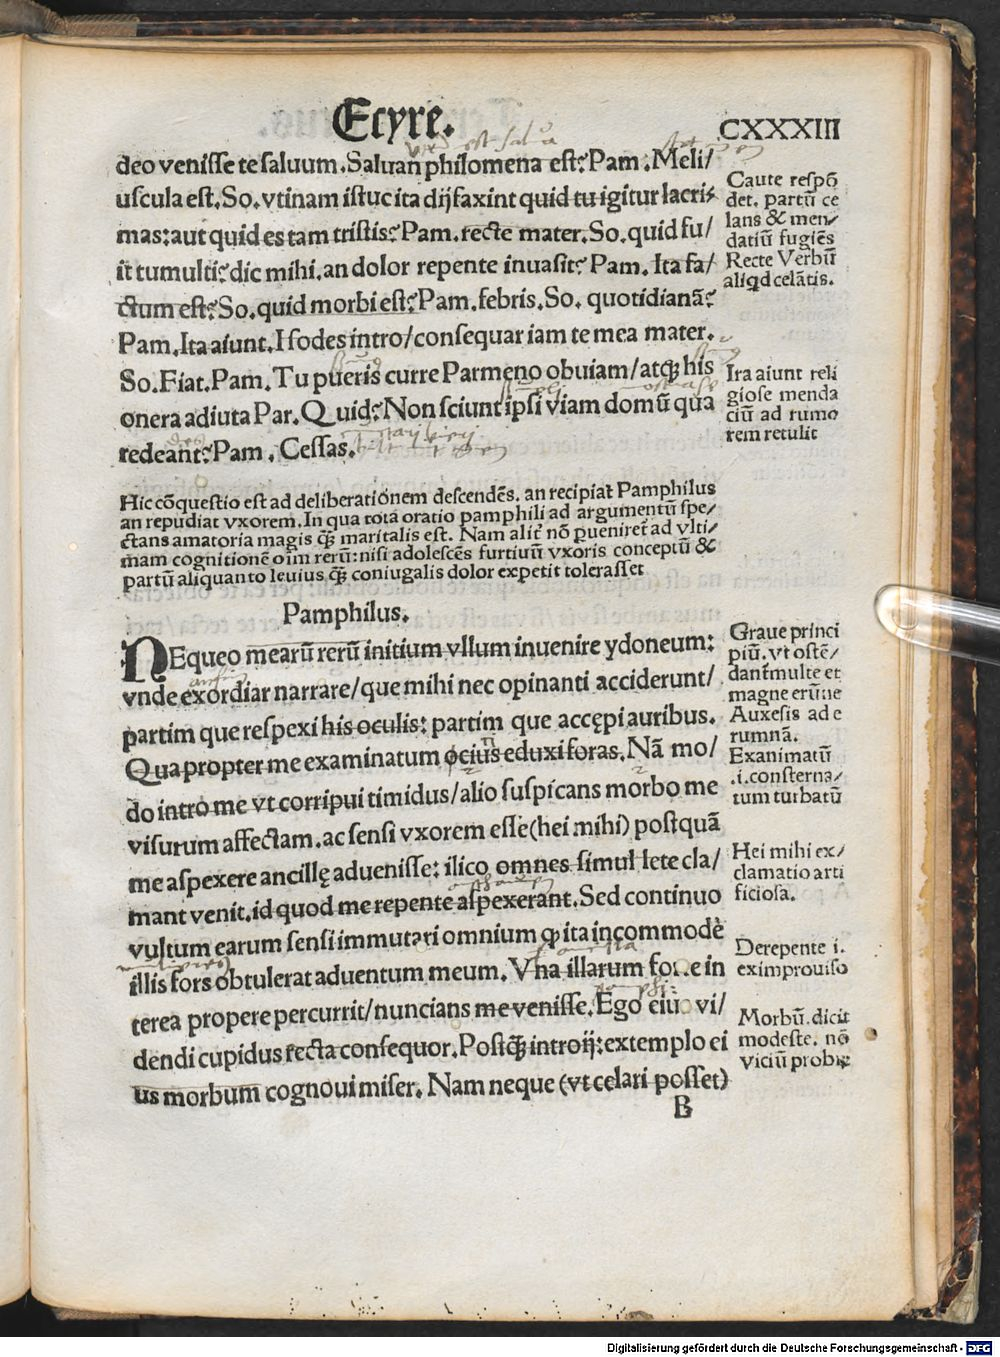 Ecyre.
CXXXIII
deo venisse te saluum. Saluan philomena est? Pam. Meli/
uscula est. So. vtinam istuc ita dij faxint quid tu igitur lacri/
mas: aut quid es tam tristis? Pam. recte mater. So. quid fu/
it tumulti? dic mihi. an dolor repente inuasit? Pam. Ita fa/
ctum est? So. quid morbi est? Pam. febris. So. quotidianã?
Pam. Ita aiunt. I sodes intro/consequar iam te mea mater.
So. Fiat. Pam. Tu pueris curre Parmeno obuiam/atqꝫ his
onera adiuta Par. Quid? Non sciunt ipsi viam domũ qua
redeant? Pam. Cessas.
Caute respõ
det. partũ ce
lans & men/
datiũ fugiẽs
Recte Verbũ
aliqd celãtis.
Ita aiunt reli
giose menda
ciũ ad rumo
rem retulit
Hic cõquestio est ad deliberationem descendẽs. an recipiat Pamphilus
an repudiat vxorem. In qua tota oratio pamphili ad argumentũ spe/
ctans amatoria magis qꝫ̃ maritalis est. Nam alit̃ nõ ꝑueniret ad vlti/
mam cognitionẽ oĩm rerũ: nisi adolescẽs furtiuũ vxoris conceptũ &
partũ aliquanto leuius qꝫ̃ coniugalis dolor expetit tolerasset
Pamphilus.
NEqueo mearũ rerũ initium vllum inuenire ydoneum:
vnde exordiar narrare/que mihi nec opinanti acciderunt/
partim que respexi his oculis: partim que accępi auribus.
Qua propter me examinatum ocius eduxi foras. Nã mo/
do intro me vt corripui timidus/alio suspicans morbo me
visurum affectam. ac sensi vxorem esse (hei mihi) postquã
me aspexere ancillę aduenisse: ilico omnes simul lete cla/
mant venit. id quod me repente aspexerant. Sed continuo
vultum earum sensi immutari omnium ꝙ ita incommodè
illis fors obtulerat aduentum meum. Vna illarum forte in
terea propere percurrit/nuncians me venisse. Ego eius vi/
dendi cupidus recta consequor. Postqꝫ̃ introij: extemplo ei
us morbum cognoui miser. Nam neque (vt celari posset)
B
Graue princi
piũ. vt ostẽ/
dant̃ multe et
magne erũne
Auxesis ad e
rumnã.
Exanimatũ
.i. consterna/
tum turbatũ
Hei mihi ex/
clamatio arti
ficiosa.
Derepente i.
ex improuiso
Morbũ. dicit
modeste. nõ
viciũ probꝝ
Digitalisierung gefördert durch die Deutsche Forschungsgemeinschaft - DFG